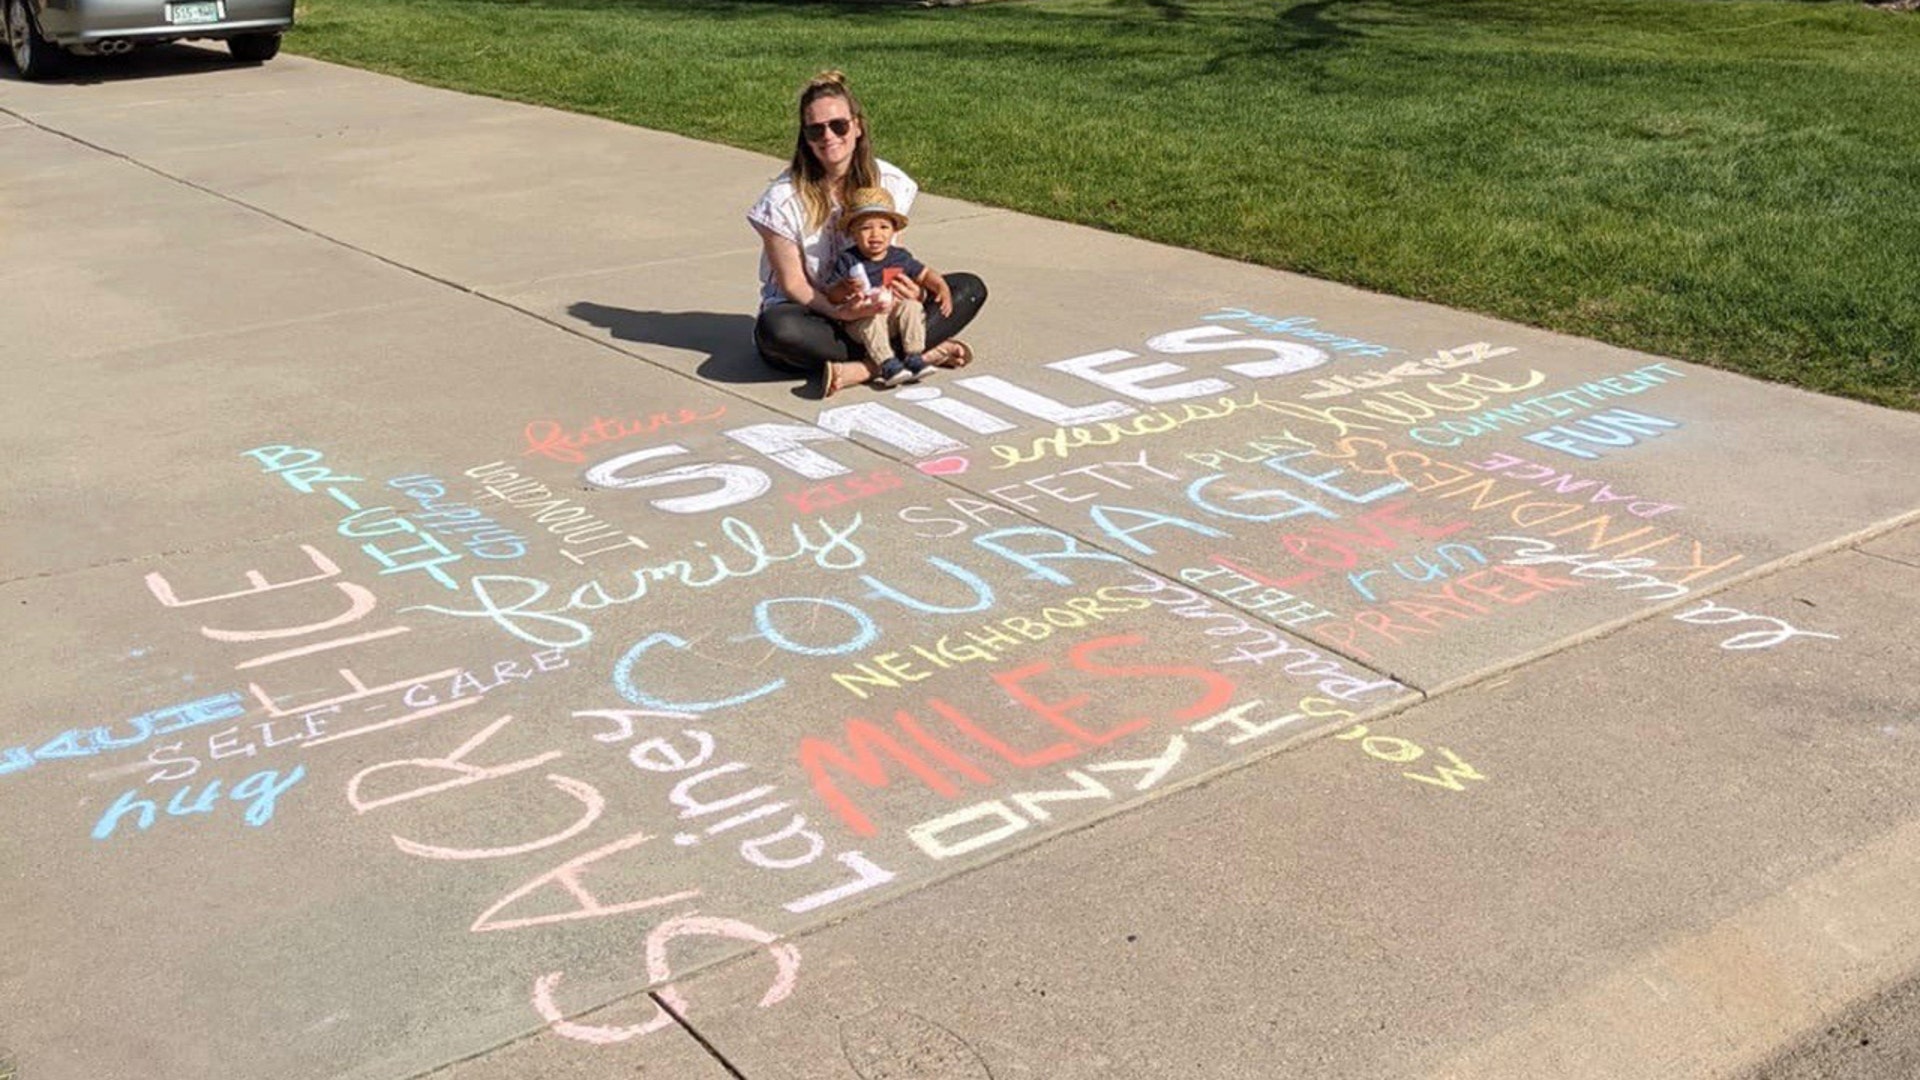 SMILES
future
exercise
heroes
COMMITMENT
FUN
BRIGHT
children
INNOVATION
KISS
SAFETY
PLAY
KINDNESS
DANCE
family
COURAGE
LOVE
run
laugh
SACRIFICE
SELF-CARE
hug
NEIGHBORS
patience
HELP
PRAYER
MILES
Lainey